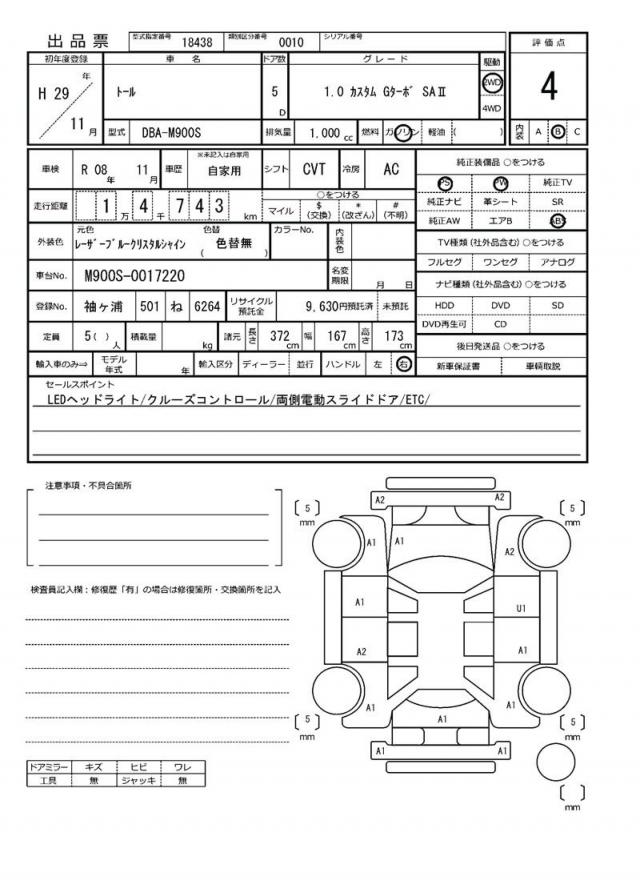 出品票 型式指定番号 18438 類別区分番号 0010 シリアル番号
評価点
4
内装 A B C
初年度登録 車名 ドア数 グレード 駆動
H 29 年 11 月
トール
5 D
1.0 カスタム Gターボ SAⅡ
2WD
4WD
型式 DBA-M900S 排気量 1.000 cc 燃料 ガソリン 軽油 ( )
車検 R 08 年 11 月 車歴 ※未記入は自家用 自家用 シフト CVT 冷房 AC
走行距離 1 万 4 千 7 4 3 km
○をつける
マイル $ (交換) * (改ざん) # (不明)
外装色 元色 レーザーブルークリスタルシャイン 色替 ( 色替無 ) カラーNo. 内装色
車台No. M900S-0017220 名変期限 月 日
登録No. 袖ヶ浦 501 ね 6264 リサイクル預託金 9,630円預託済 未預託
定員 5( ) 人 積載量 kg 諸元 長さ 372 cm 幅 167 cm 高さ 173 cm
輸入車のみ⇒ モデル年式 年 輸入区分 ディーラー 並行 ハンドル 左 右
純正装備品 ○をつける
PS PW 純正TV
純正ナビ 革シート SR
純正AW エアB ABS
TV種類 (社外品含む) ○をつける
フルセグ ワンセグ アナログ
ナビ種類 (社外品含む) ○をつける
HDD DVD SD
DVD再生可 CD
後日発送品 ○をつける
新車保証書 車輌取説
セールスポイント
LEDヘッドライト/クルーズコントロール/両側電動スライドドア/ETC/
注意事項・不具合箇所
検査員記入欄：修復歴「有」の場合は修復箇所・交換箇所を記入
ドアミラー キズ ヒビ ワレ
工具 無 ジャッキ 無
A2 A2
[ 5 ] mm
[ 5 ] mm
A1 A1 A2
A1 U1
A2 A1
A1 A1 A1
[ 5 ] mm
[ 5 ] mm
A1 A1
[ ] mm